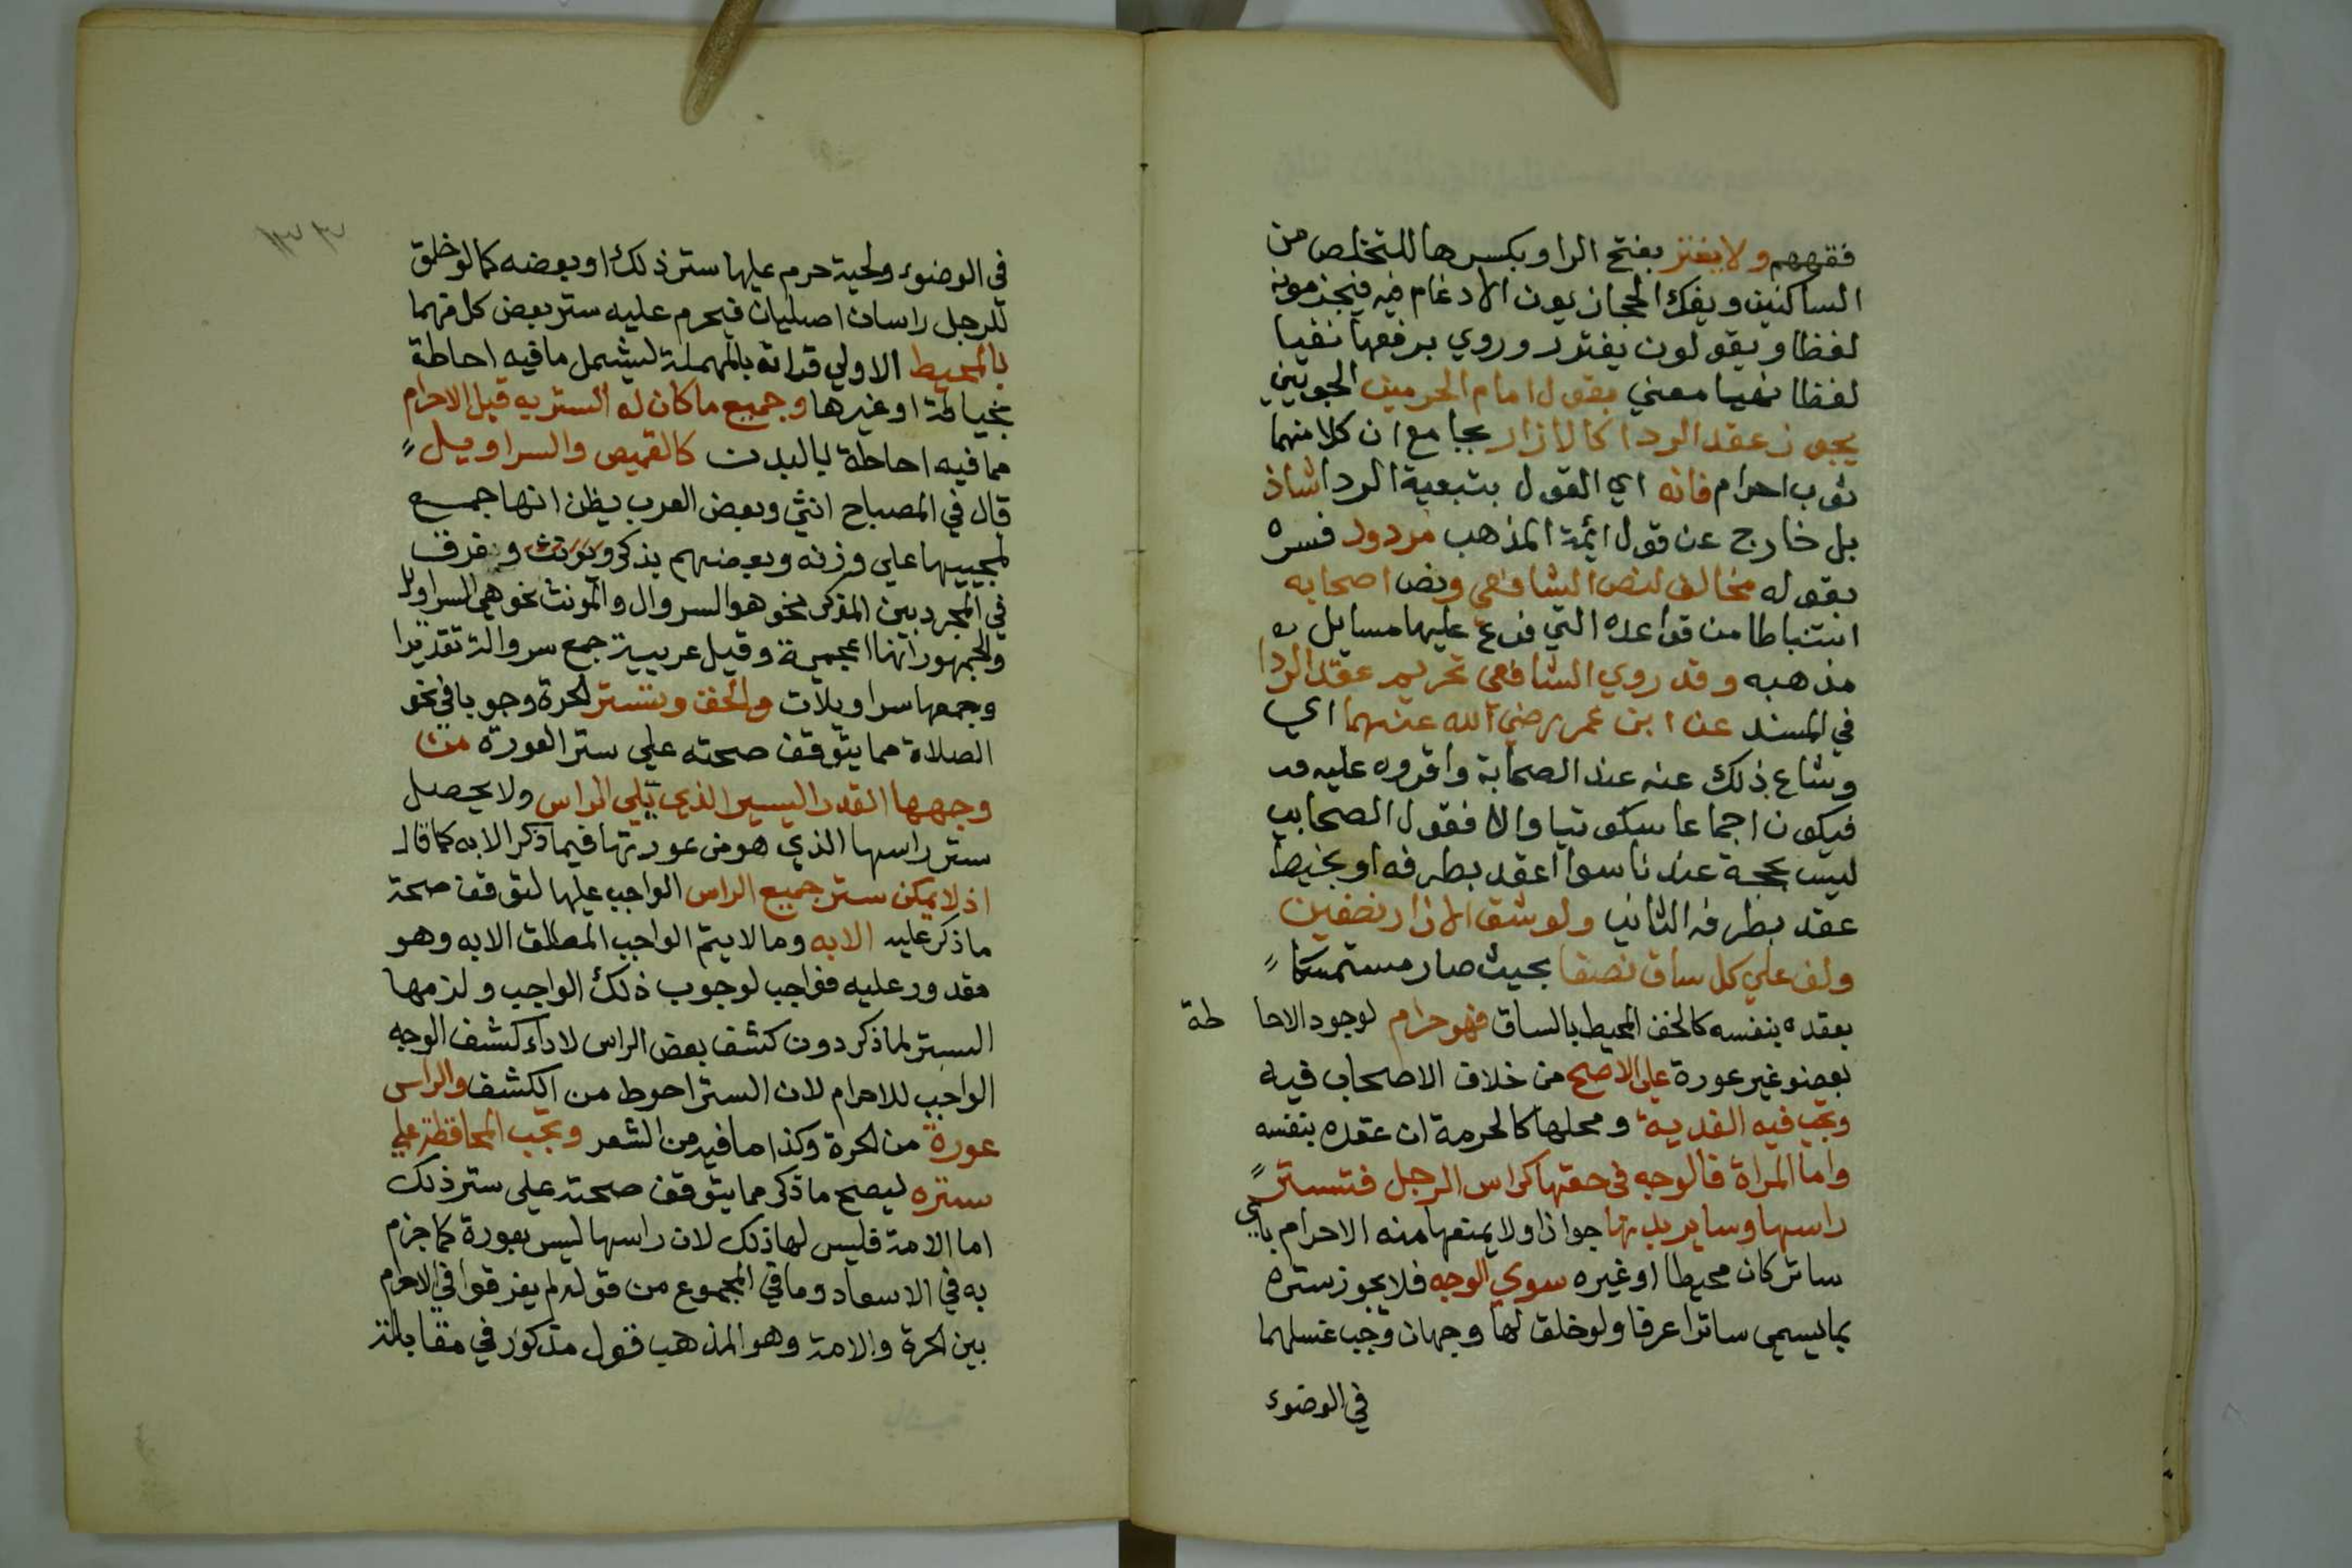 فقههم ولا يغتر بفتح الرا وبكسرها للتخلص من
الساكنين ويفك الحجازيون الادغام فيه فيجزمونه
لفظا ويقولون يغترر وروي برفعها نفيا
لفظا نهيا معني بقول امام الحرمين الجويني
يجوز عقد الردا كالازار بجامع ان كلا منهما
ثوب احرام فانه اي القول بتبعية الردا شاذ
بل خارج عن قول ائمة المذهب مردود فسره
بقوله مخالف لنص الشافعي ونص اصحابه
استنباطا من قواعده التي فرع عليها مسايل
مذهبه وقد روي الشافعي تحريم عقد الردا
في المسند عن ابن عمر رضي الله عنهما اي
وشاع ذلك عنه عند الصحابة واقروه عليه
فيكون اجماعا سكوتيا والا فقول الصحابي
ليس بحجة عندنا سوا اعقد بطرفه او بخيط
عقد بطرفه الثاني ولو شق الازار نصفين
ولف علي كل ساق نصفا بحيث صار مستمسكا
بعقده بنفسه كالخف المحيط بالساق فهو حرام لوجود الاحاطة
بعضو غير عورة علي الاصح من خلاف الاصحاب فيه
وتجب فيه الفدية ومحلها كالحرمة ان عقده بنفسه
واما المراة فالوجه في حقها كراس الرجل فتستر
راسها وساير بدنها جوازا ولا يمنعها منه الاحرام باي
ساتر كان محيطا او غيره سوي الوجه فلا يجوز ستره
بما يسمي ساترا عرفا ولو خلق لها وجهان وجب غسلهما
في الوضوء
١٣٣
في الوضوء ولحية حرم عليها ستر ذلك او بعضه كما لو خلق
للرجل راسان اصليان فيحرم عليه ستر بعض كل منهما
بالمحيط الاولي قراته بالمهملة ليشمل ما فيه احاطة
بخياطة او غيرها وجميع ما كان له الستر به قبل الاحرام
مما فيه احاطة بالبدن كالقميص والسراويل
قال في المصباح انثي وبعض العرب يظن انها جمع
لمجييها علي وزنه وبعضهم يذكر ويونث وفرق
في المجرد بين المذكر نحو هو السروال والمونث نحو هي السراويل
والجمهور انها اعجمية وقيل عربية جمع سروالة تقديرا
وجمعها سراويلات والخف وتستر الحرة وجوبا في نحو
الصلاة مما يتوقف صحته علي ستر العورة من
وجهها القدر اليسير الذي يلي الراس ولا يحصل
ستر راسها الذي هو من عورتها فيما ذكر الا به كما قال
اذ لا يمكن ستر جميع الراس الواجب عليها لتوقف صحة
ما ذكر عليه الا به وما لا يتم الواجب المطلق الا به وهو
مقدور عليه فواجب لوجوب ذلك الواجب ولزمها
الستر لما ذكر دون كشف بعض الراس لاداء كشف الوجه
الواجب للاحرام لان الستر احوط من الكشف والراس
عورة من الحرة وكذا ما فيه من الشعر وتجب المحافظة علي
ستره ليصح ما ذكر مما يتوقف صحته علي ستر ذلك
اما الامة فليس لها ذلك لان راسها ليس بعورة كما جزم
به في الاسعاد وما في المجموع من قوله لم يفرقوا في الاحرام
بين الحرة والامة وهو المذهب فقول مذكور في مقابلة